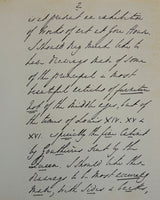 2
is at present an exhibition
of Works of art at Gore House.
I should very much like to
have Drawings made of some
of the principal & most
beautiful articles of furniture
not of the middle ages, but of
the times of Louis XIV. XV &
XVI. Specially the fine Cabinet
by Gouthière sent by the
Queen. I should like these
Drawings to be most
made, both sides &